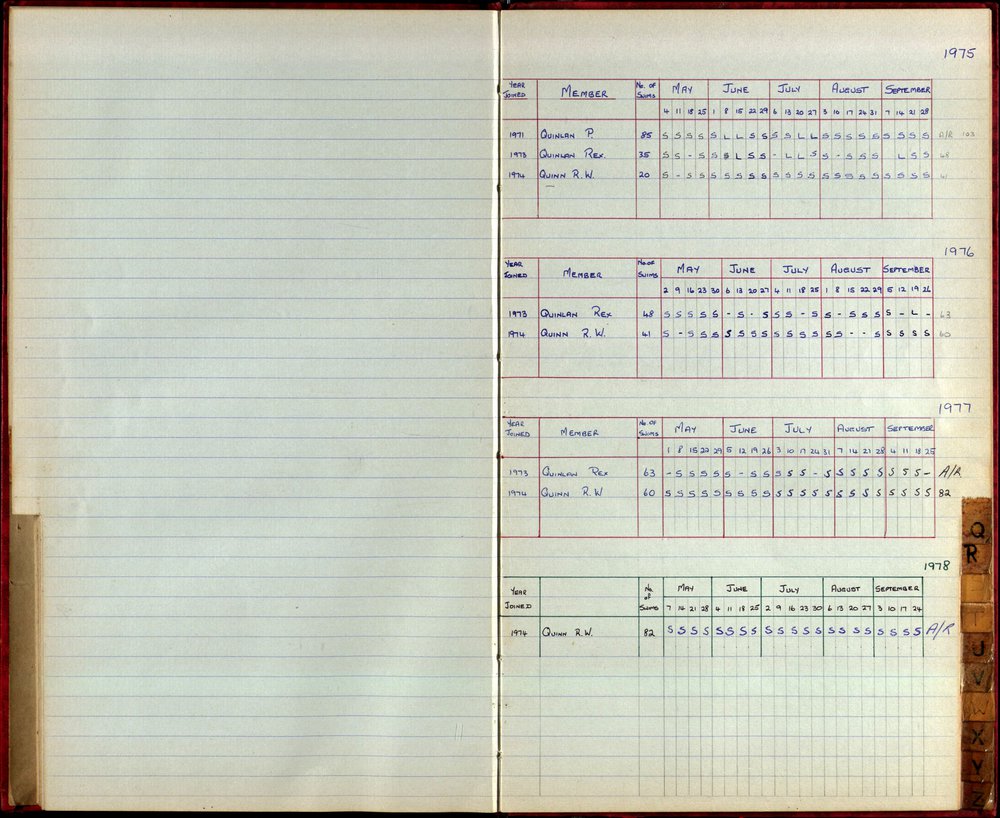 1975
YEAR JOINED MEMBER No. OF SWIMS MAY JUNE JULY AUGUST SEPTEMBER
4 11 18 25 1 8 15 22 29 6 13 20 27 3 10 17 24 31 7 14 21 28
1971 QUINLAN P. 85 S S S S S L L S S S S L L S S S S S S S S S A/R 103
1973 QUINLAN REX. 35 S S - S S L S S - L L S S - S S S L S S 48
1974 QUINN R.W. 20 S - S S S S S S S S S S S S S S S S S S S S 41
1976
YEAR JOINED MEMBER No. OF SWIMS MAY JUNE JULY AUGUST SEPTEMBER
2 9 16 23 30 6 13 20 27 4 11 18 25 1 8 15 22 29 5 12 19 26
1973 QUINLAN REX 48 S S S S S - S - S S S - S S - S S S S - L - 63
1974 QUINN R.W. 41 S - S S S S S S S S S S S S S - - S S S S S 60
1977
YEAR JOINED MEMBER No. OF SWIMS MAY JUNE JULY AUGUST SEPTEMBER
1 8 15 22 29 5 12 19 26 3 10 17 24 31 7 14 21 28 4 11 18 25
1973 QUINLAN REX 63 - S S S S S - S S S S S - S S S S S S S S - A/R
1974 QUINN R.W 60 S S S S S S S S S S S S S S S S S S S S S S 82
1978
YEAR JOINED No. of SWIMS MAY JUNE JULY AUGUST SEPTEMBER
7 14 21 28 4 11 18 25 2 9 16 23 30 6 13 20 27 3 10 17 24
1974 QUINN R.W. 82 S S S S S S S S S S S S S S S S S S S S S A/R
Q
R
T
U
V
W
X
Y
Z